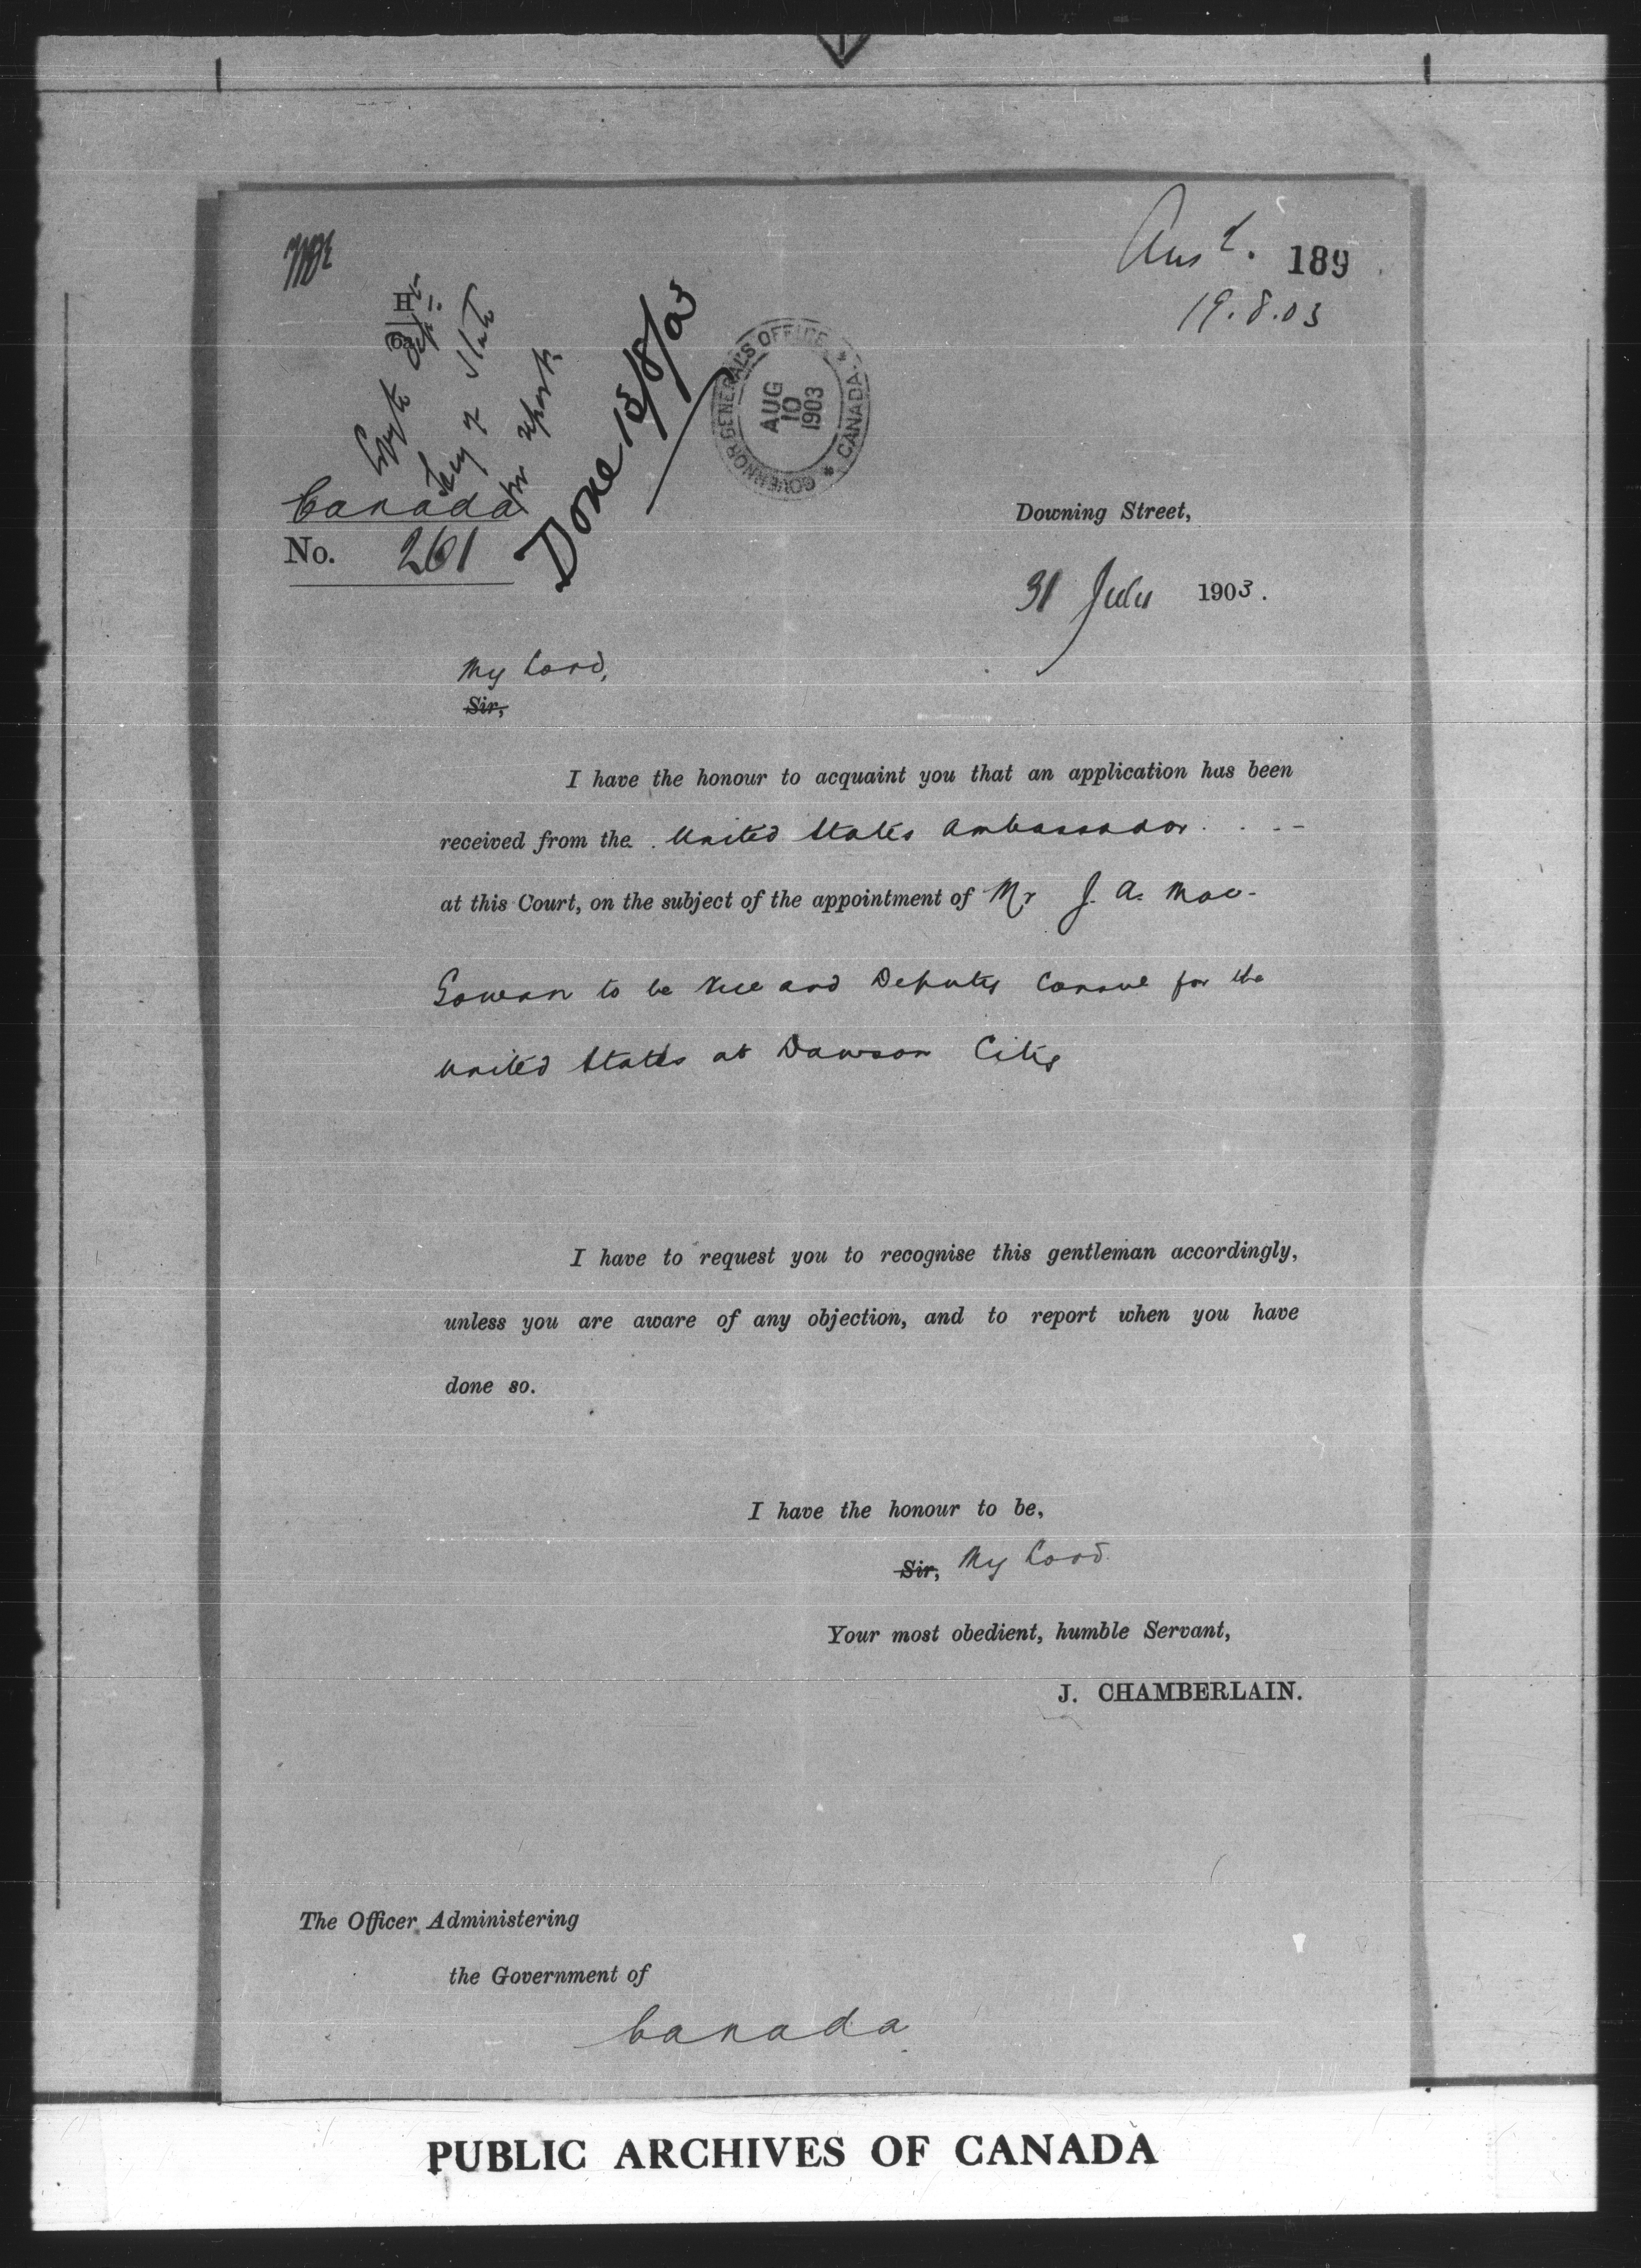 Ans^d. 189
19.8.03
H
Copy to
Secy of State
for report
Done 15/8/03
GOVERNOR GENERAL'S OFFICE * CANADA *
AUG
10
1903
Canada
No. 261
Downing Street,
31 July 1903.
My Lord,
Sir,
I have the honour to acquaint you that an application has been
received from the United States Ambassador
at this Court, on the subject of the appointment of Mr J. A. Mac-
Gowan to be Vice and Deputy Consul for the
United States at Dawson City
I have to request you to recognise this gentleman accordingly,
unless you are aware of any objection, and to report when you have
done so.
I have the honour to be,
Sir, My Lord.
Your most obedient, humble Servant,
J. CHAMBERLAIN.
The Officer Administering
the Government of
Canada
PUBLIC ARCHIVES OF CANADA